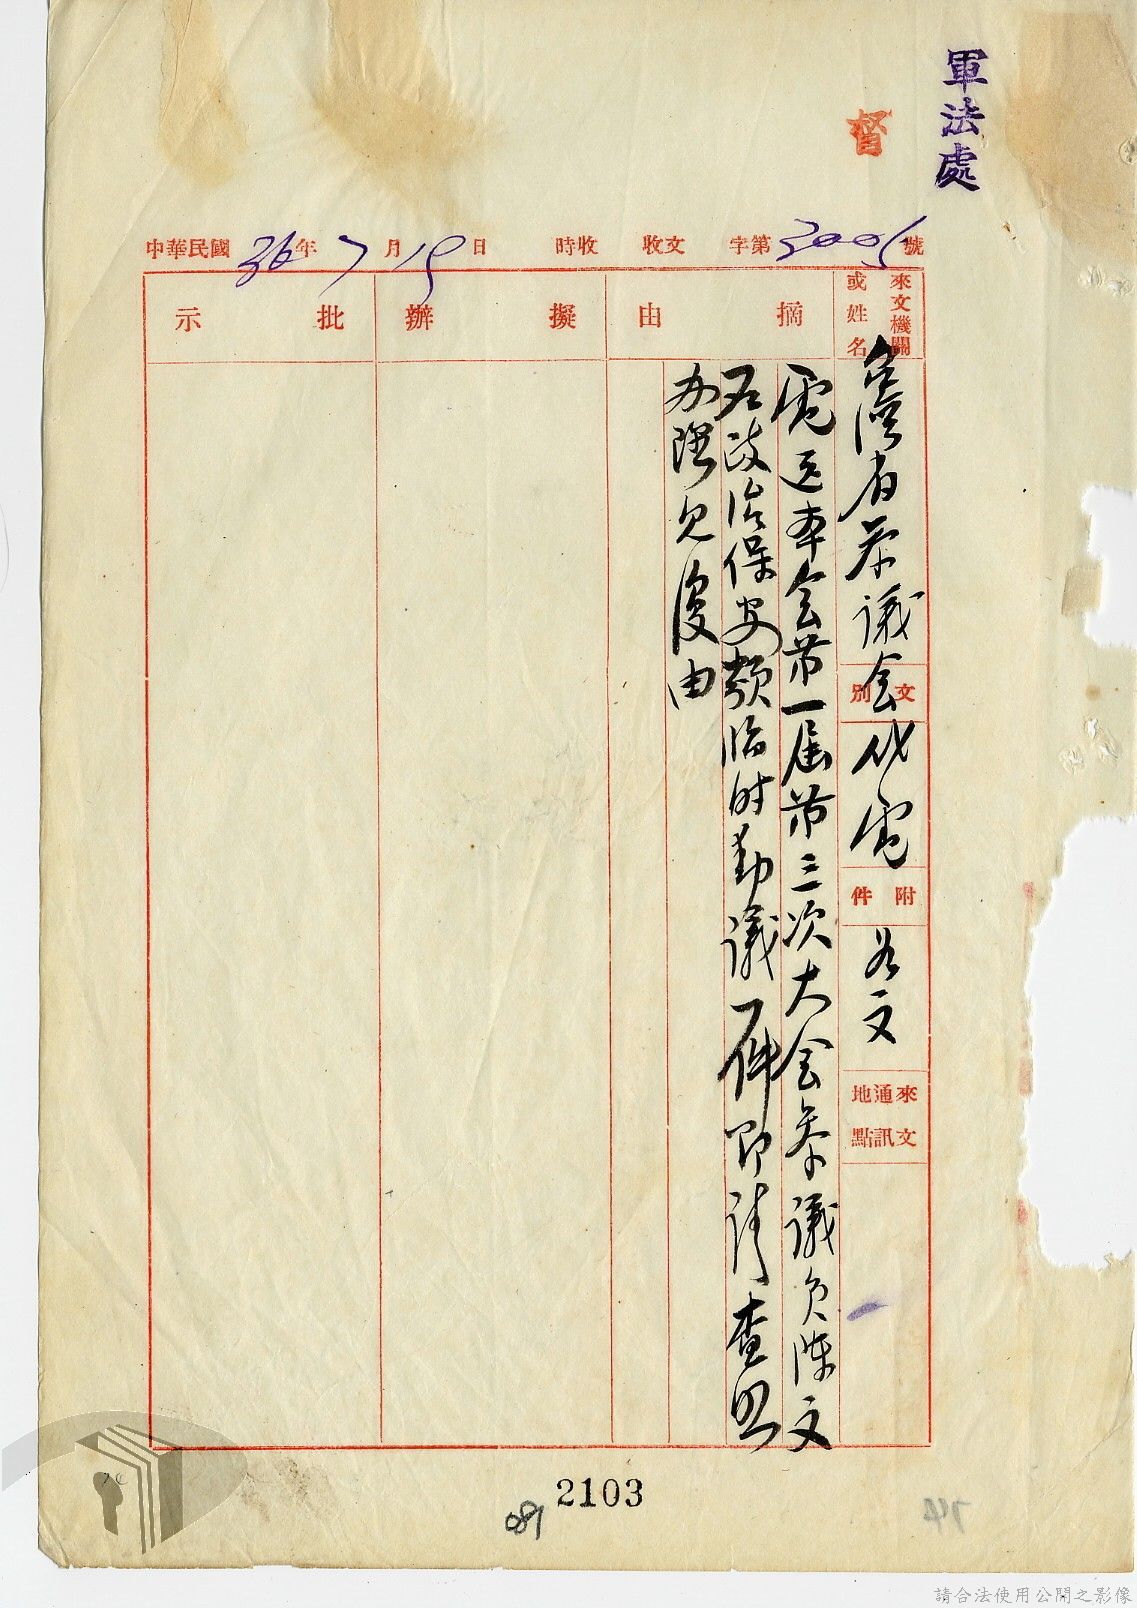 軍法處
督
中華民國36年7月19日 時收 收文 字第3005號
來文機關或姓名
臺灣省參議會
文別
代電
附件
如文
來文通訊地點
摘由
電送本會第一屆第三次大會參議員陳文
石政治保安類臨時動議一件即請查照
办理見復由
擬辦
批示
2103
請合法使用公開之影像